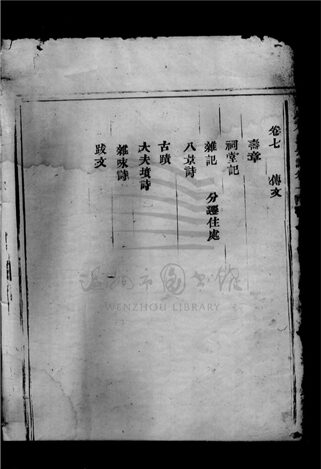 卷七 傳文
壽章
祠堂記
雜記 分遷住處
八景詩
古蹟
大夫墳詩
雜咏詩
跋文
温州市图书馆
WENZHOU LIBRARY